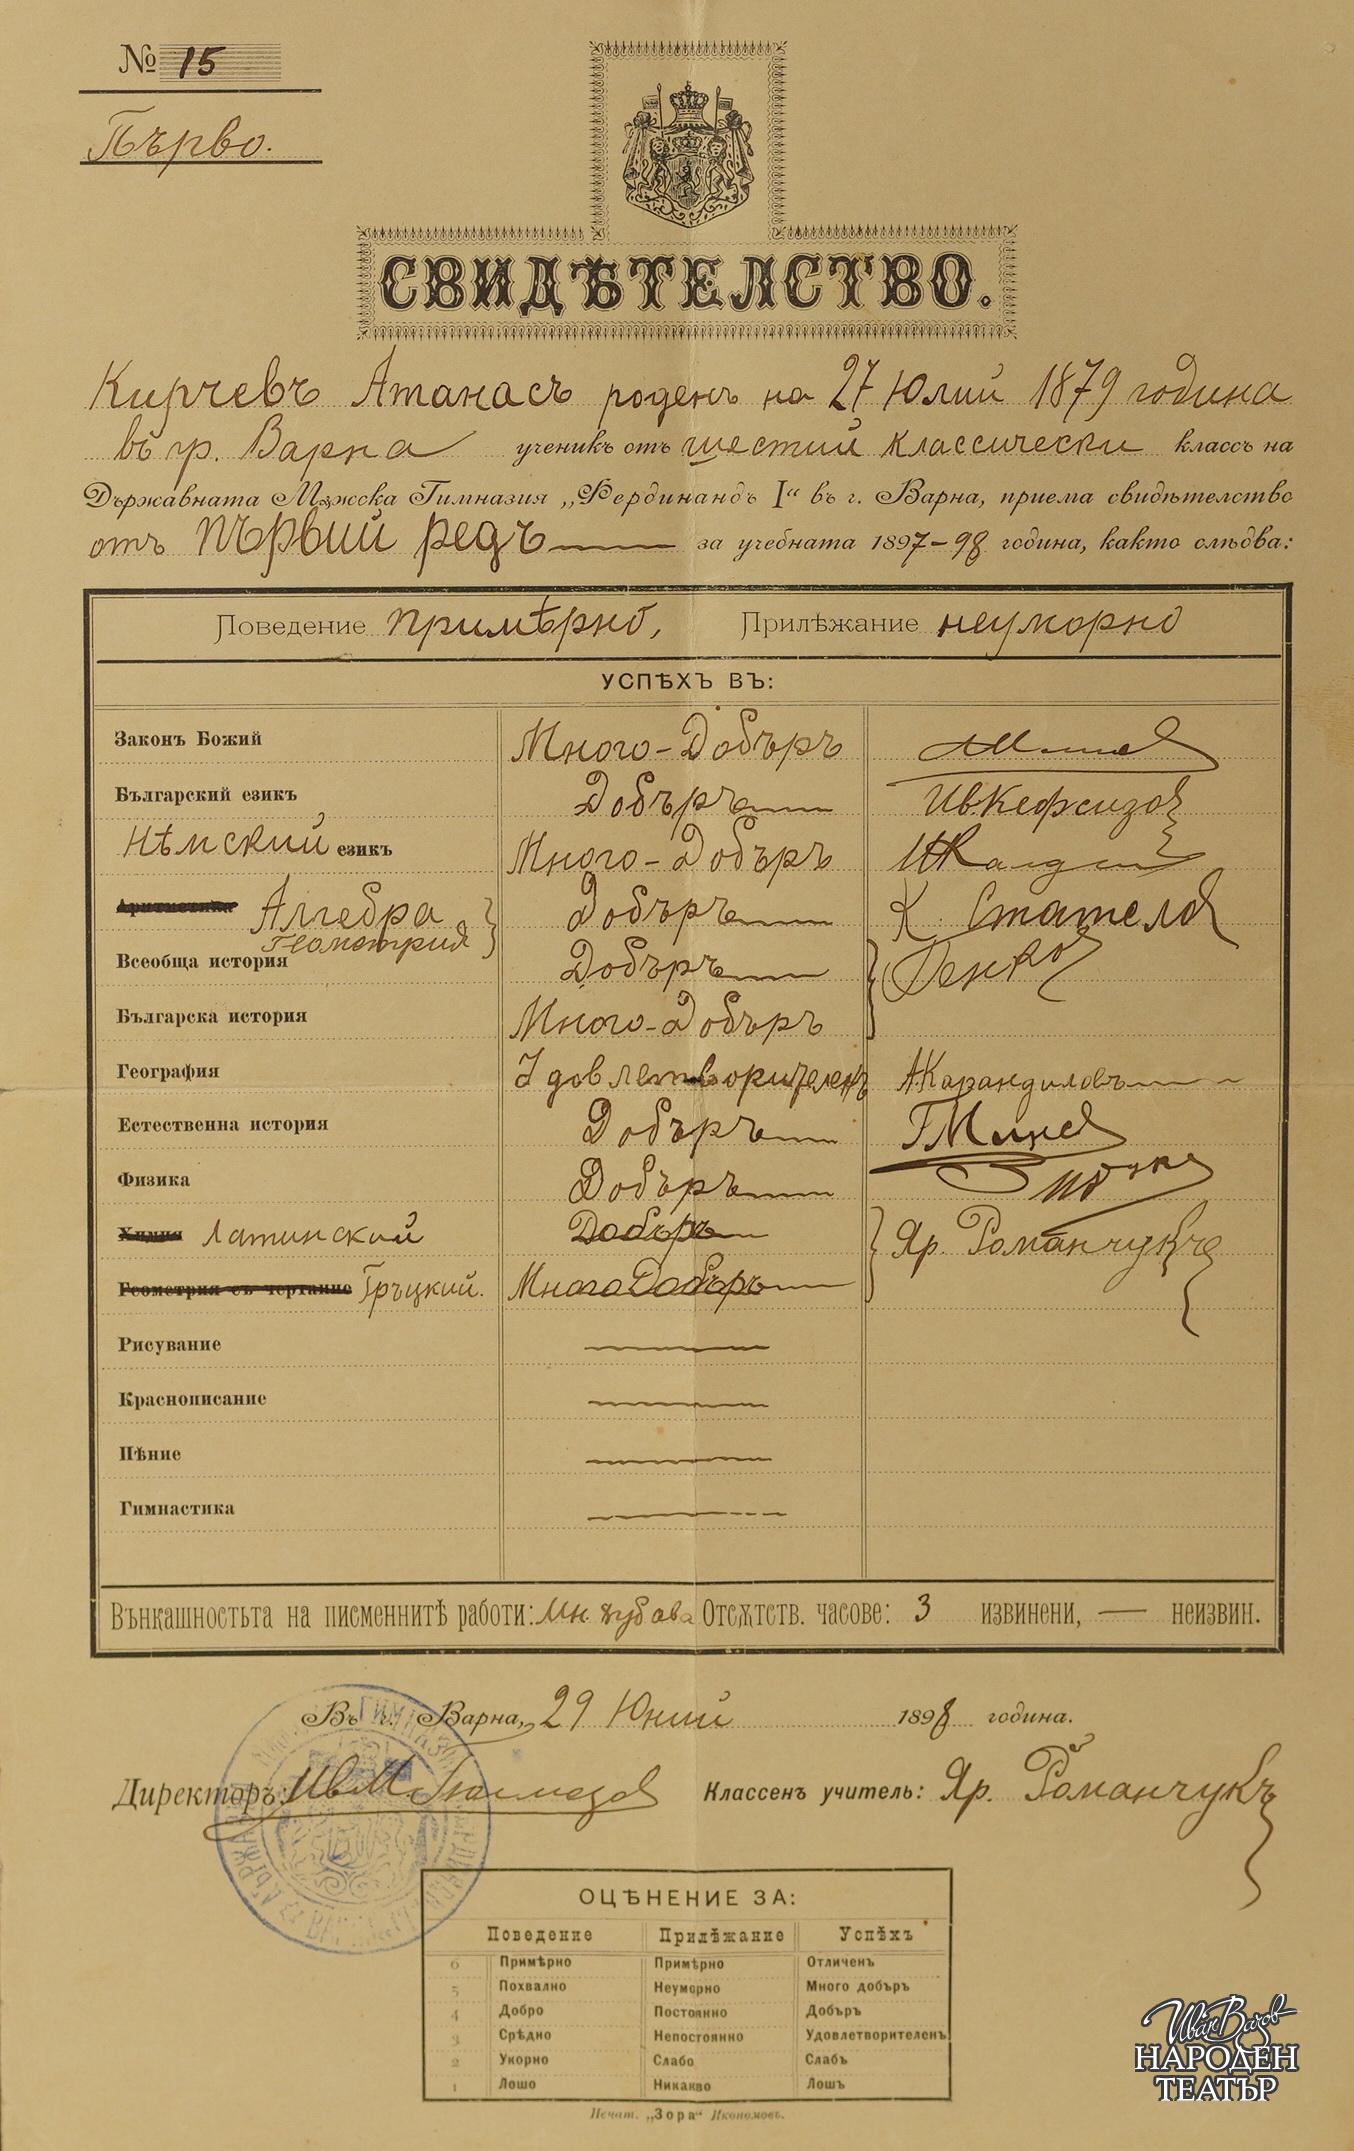 № 15
Първо.
СВИДѢТЕЛСТВО.
Кирчевъ Атанасъ роденъ на 27 Юлий 1879 година
въ гр. Варна ученикъ отъ шестий классически классъ на
Държавната Мѫжска Гимназия „Фердинандъ I“ въ г. Варна, приема свидѣтелство
отъ първий редъ за учебната 1897-98 година, както слѣдва:
Поведение примѣрно, Прилѣжание неуморно
УСПѢХЪ ВЪ:
Законъ Божий Много-Добъръ
Българский езикъ Добъръ
Нѣмский езикъ Много-Добъръ
Аритметика Алгебра Добъръ К. Стателов
Геометрия
Всеобща история Добъръ Генков
Българска история Много-Добъръ
География Удовлетворителенъ А. Карандиловъ
Естествена история Добъръ Г Минев
Физика Добъръ
Химия Латинский Добъръ Яр. Романчукъ
Геометрия съ чертание Гръцкий. Много Добъръ
Рисувание
Краснописание
Пѣние
Гимнастика
Вънкашностьта на писменнитѣ работи: Мн. хубава Отсѫтств. часове: 3 извинени, — неизвин.
Въ г. Варна, 29 Юний 1898 година.
Директоръ: Классенъ учитель: Яр. Романчукъ
ОЦѢНЕНИЕ ЗА:
Поведение Прилѣжание Успѣхъ
6 Примѣрно Примѣрно Отличенъ
5 Похвално Неуморно Много добъръ
4 Добро Постоянно Добъръ
3 Срѣдно Непостоянно Удовлетворителенъ
2 Укорно Слабо Слабъ
1 Лошо Никакво Лошъ
Печат. „Зора“ Икономовъ.
Иван Вазов
НАРОДЕН
ТЕАТЪР